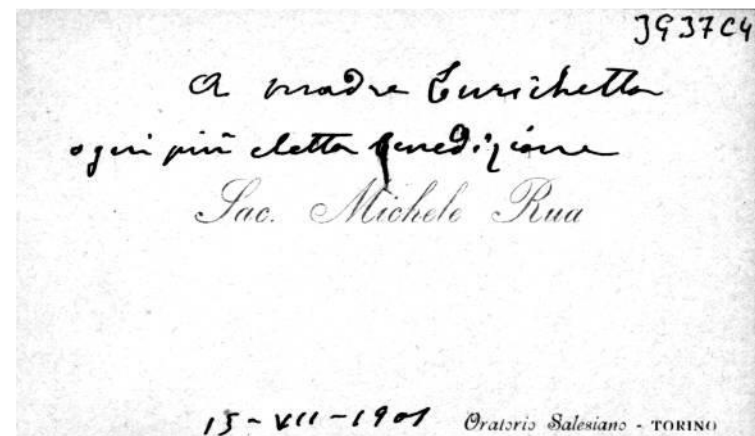 3937C4
A madre Enrichetta
ogni più eletta benedizione
Sac. Michele Rua
15-VII-1901 Oratorio Salesiano - TORINO